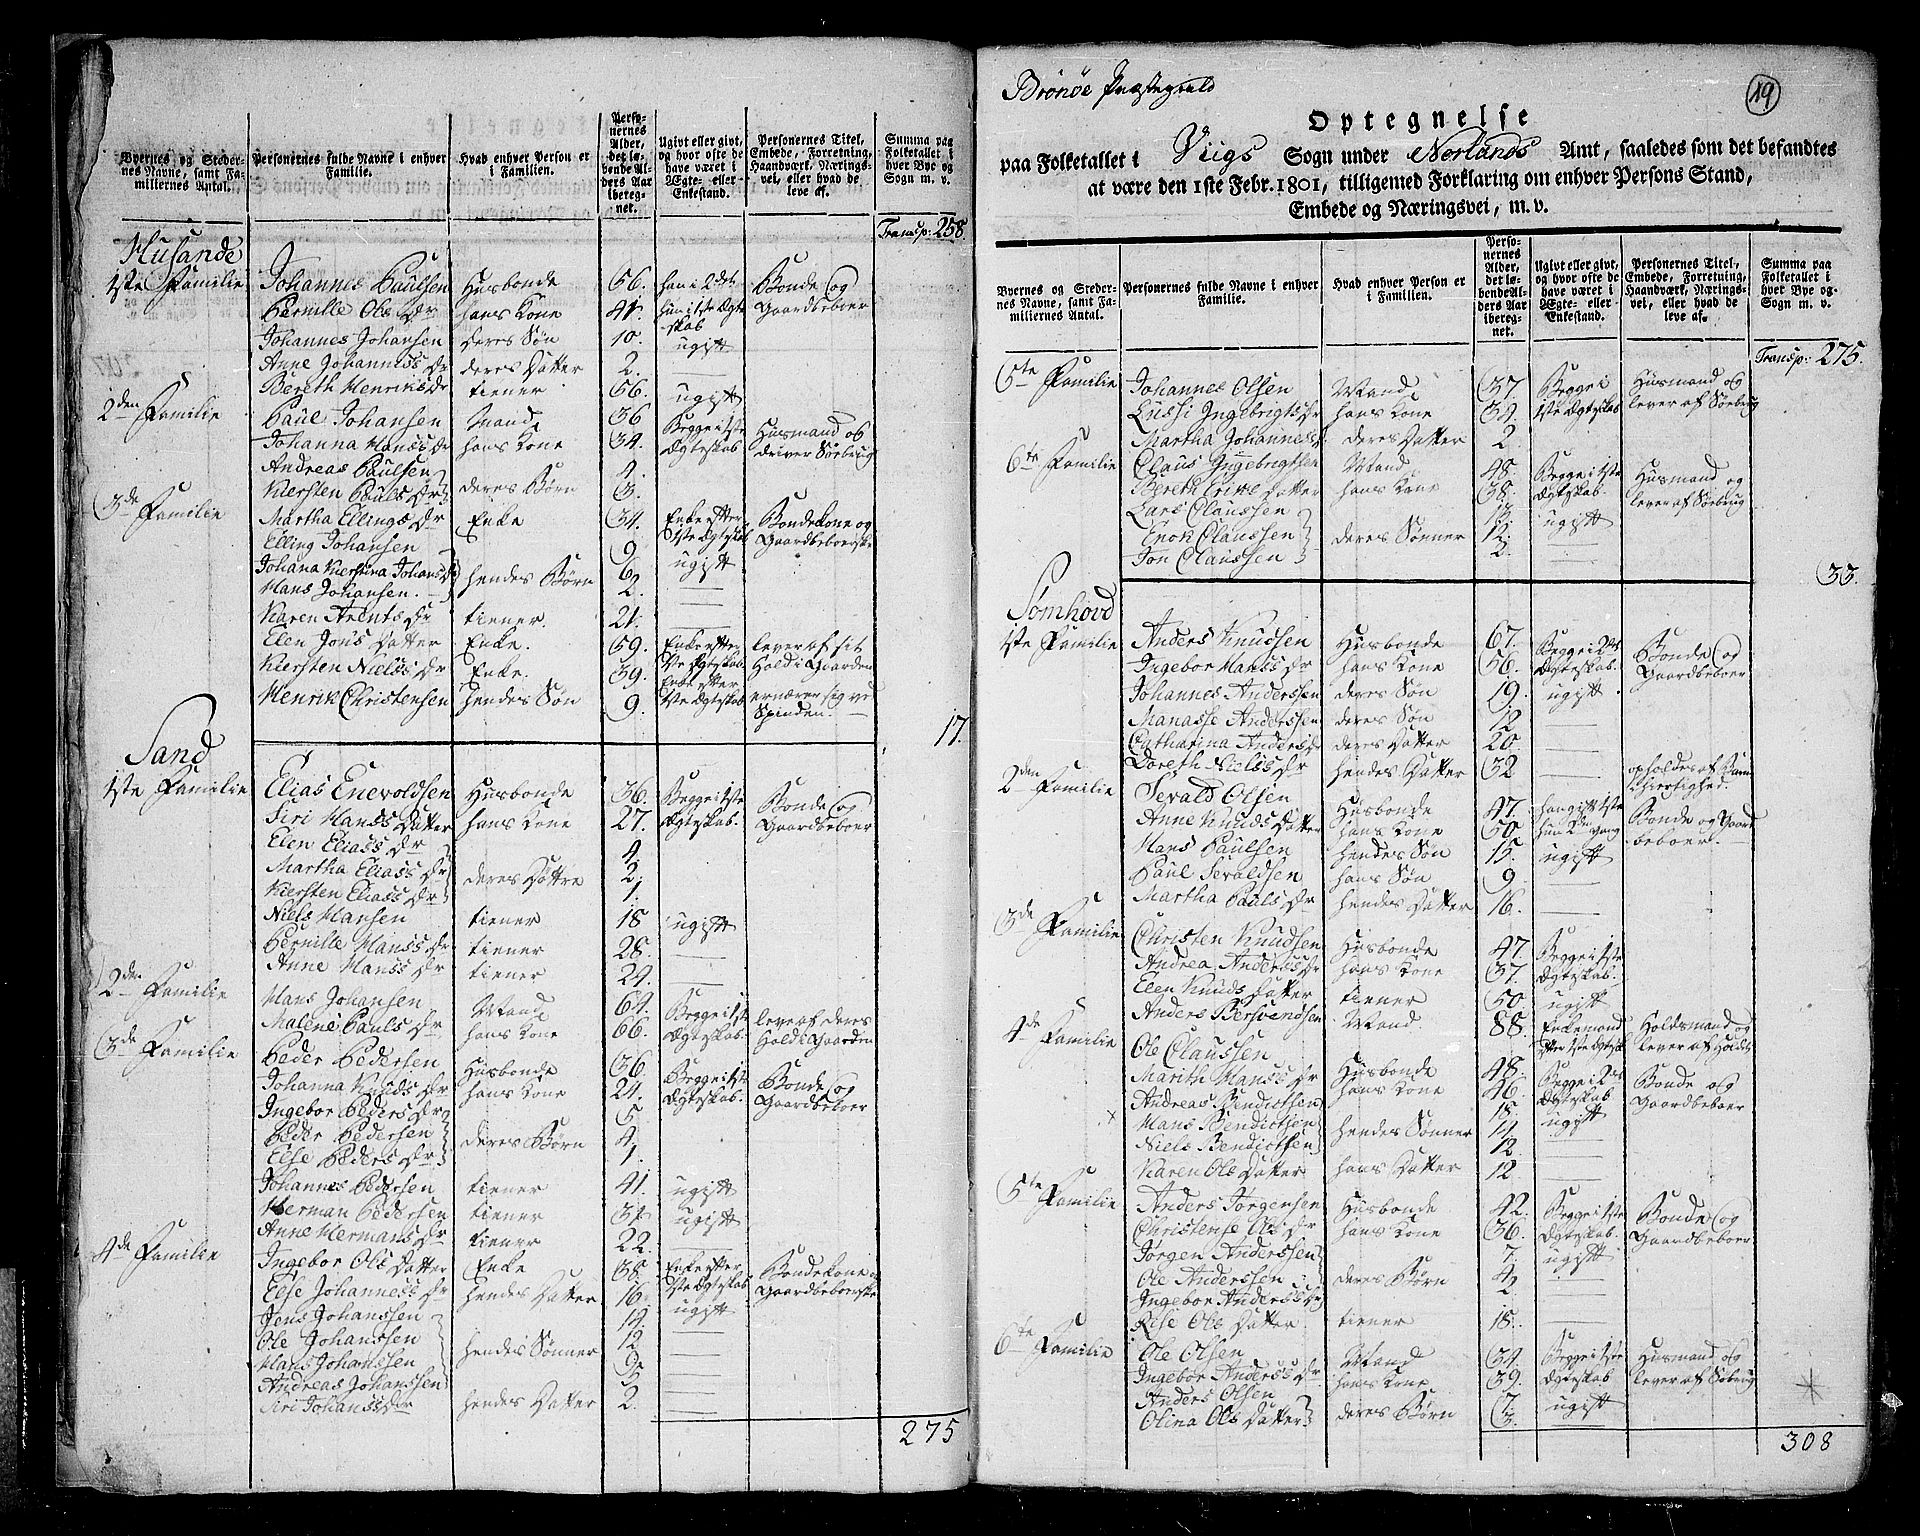 Byernes og Steder-
nes Navne, samt Fa-
miliernes Antal.
Personernes fulde Navne i enhver
Familie.
Hvad enhver Person er
i Familien.
Perso-
nernes
Alder,
det lø-
bende Al-
ders Aar
iberég-
net.
Ugivt eller givt,
og hvor ofte de
have været i
Ægte- eller
Enkestand.
Personernes Titel,
Embede, Forretning,
Haandværk, Nærings-
vei, eller hvad de
leve af.
Summa paa
Folketallet i
hver Bye og
Sogn m. v.
Transp: 258.
Husande
1ste Familie Johannes Paulsen Husbonde 56. han i 2det Bonde og
Pernille Ols Dr hans Kone 41. hun i 1ste Ægte Gaardbeboer
-skab
Johannes Johansen deres Søn 10. ugift
Anne Johanness Dr deres Datter 2. —
Bereth Henriks Dr tiener 56. ugift
2den Familie Paul Johansen Mand 36 Begge i 1ste Husmand og
Johanna Hanss Dr hans Kone 34. Ægteskab driver Søebrug
Andreas Paulsen 4.
Kiersten Pauls Dr deres Børn 3.
3de Familie Martha Ellings Dr Enke 34. Enke efter Bondekone og
1ste Ægteskab Gaardbeboerske
Elling Johansen 9.
Johana Kierstina Johans Dr hendes Børn 6 ugift
Hans Johansen. 2. —
Karen Arents Dr tiener. 21. —
Elen Jons Datter Enke. 59. Enke efter lever af sit
1ste Ægteskab Hold i Gaarden
Kiersten Nielss Dr Enke. 39. Enke efter ernærer sig ved
Henrik Christensen hendes Søn 9. 1ste Ægteskab Spinden.
17.
Sand
1ste Familie Elias Enevoldsen Husbonde 36. Begge i 1ste Bonde og
Siri Hanss Datter hans Kone 27. Ægteskab. Gaardbeboer
Elen Eliass Dr 4.
Martha Eliass Dr deres Døttre 2.
Kiersten Eliass Dr 1.
Niels Hansen tiener 18 ugift
Pernille Hanss Dr tiener 28. —
Anne Hanss Dr tiener 24. —
2den Familie Hans Johansen Mand 64. Begge i 1ste lever af deres
Malene Pauls Dr hans Kone 66. Ægteskab. Hold i Gaarden
3de Familie Peder Pedersen Husbonde 36. Begge i 1ste Bonde og
Johanna Knuds Dr hans Kone 24. Ægteskab. Gaardbeboer
Ingebor Peders Dr 5.
Peder Pedersen deres Børn 4.
Else Peders Dr 1.
Johannes Pedersen tiener 41. ugift
Herman Pedersen tiener ugift
Anne Hermans Dr tiener 22. —
4de Familie Ingebor Ols Datter Enke 38. Enke efter Bondekone
Else Johanness Dr hendes Datter 16. 1ste Ægteskab Gaardbeboerske
Jens Johanssen 14. ugift
Ole Johanssen hendes Sønner 12 —
Hans Johanssen 9. —
Andreas Johanssen 5 —
Siri Johanss Dr hendes Datter 2. —
275
Brönöe Præstegield
19
Optegnelse
paa Folketallet i Viigs Sogn under Norlands Amt, saaledes som det befandtes
at være den 1ste Febr. 1801, tilligemed Forklaring om enhver Persons Stand,
Embede og Næringsvei, m. v.
Byernes og Steder-
nes Navne, samt Fa-
miliernes Antal.
Personernes fulde Navne i enhver
Familie.
Hvad enhver Person er
i Familien.
Perso-
nernes
Alder,
det lø-
bende Al-
ders Aar
ibereg-
net.
Ugivt eller givt,
og hvor ofte de
have været i
Ægte- eller
Enkestand.
Personernes Titel,
Embede, Forretning,
Haandværk, Nærings-
vei, eller hvad de
leve af.
Summa paa
Folketallet i
hver Bye og
Sogn m. v.
Transp: 275.
5te Familie Johannes Olsen Mand 37. Begge i Husmand og
Lussi Ingebrigts Dr hans Kone 34. 1ste Ægteskab lever af Søebrug
Martha Johanness deres Datter 2 —
6te Familie Claus Ingebrigtsen Mand 48. Begge i 1ste Husmand og
Bereth Eriks Datter hans Kone 38. Ægteskab. lever af Søebrug
Lars Claussen ugift
Enok Claussen deres Sønner 12. —
Jon Claussen 2. —
33.
Somhovd
1ste Familie Anders Knudsen Husbonde 67. Begge i 2det Bonde og
Ingebor Hanss Dr hans Kone 56. Ægteskab. Gaardbeboer
Johannes Anderssen deres Søn 19. ugift
Manasse Anderssen deres Søn 12 —
Catharina Anders Dr deres Datter 20. —
Doreth Nielss Dr hendes Datter 32 — opholdes af
2den Familie Sevald Olsen Husbonde 47. han gift 1ste Bonde og Gaard
Anne Knuds Datter hans Kone 50. hun 2den gang beboer.
Hans Paulsen hendes Søn 15. ugift
Paul Sevaldsen hans Søn 9 —
Martha Pauls Dr hendes Datter 16. —
3de Familie Christen Knudsen Husbonde 47. Begge i 1ste
Andrea Anderss Dr hans Kone 37. Ægteskab.
Elen Knuds Datter tiener 50. ugift
Anders Bersvendsen Mand 88. Enkemand Holdsmand og
efter 1ste Ægtesk lever af Holdet
4de Familie Ole Claussen Husbonde 48. Begge i 2det Bonde og
Marith Hanss Dr hans Kone 46. Ægteskab Gaardbeboer
Andreas Bendictsen 18. ugift
Hans Bendictsen hendes Sønner 14 —
Niels Bendictsen 12 —
Karen Ols Datter hans Datter 12. —
5te Familie Anders Jörgensen Husbonde 42. Begge i 1ste Bonde og
Christense Ols Dr hans Kone 36. Ægteskab. Gaardbeboer
Jörgen Anderssen 7. ugift
Ole Anderssen deres Børn 4. —
Ingebor Anderss Dr 2. —
Ols Datter tiener 18. —
6te Familie Ole Olsen Mand 34. Begge i 1ste Husmand og
Ingebor Anderss Dr hans Kone 39. Ægteskab lever af Søbrug
Anders Olsen 7. ugift
Olina Ols Datter deres Børn 3. —
308